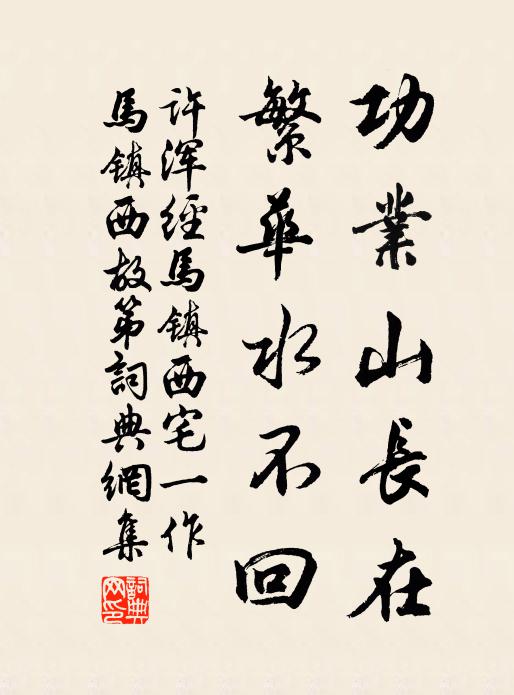 功業山長在
繁華水不回
許渾經馬鎮西宅一作
馬鎮西故第詞典網集
詞典網印